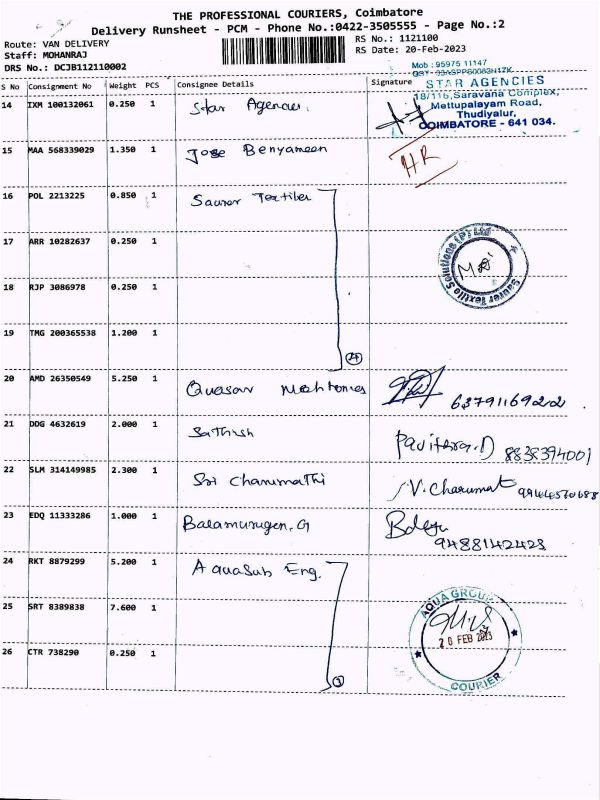 THE PROFESSIONAL COURIERS, Coimbatore
Delivery Runsheet - PCM - Phone No.:0422-3505555 - Page No.:2
Route: VAN DELIVERY RS No.: 1121100
Staff: MOHANRAJ RS Date: 20-Feb-2023
DRS No.: DCJB112110002
Mob : 95975 11147
S No Consignment No Weight PCS Consignee Details Signature
STAR AGENCIES
18/116, Saravana Complex,
Mettupalayam Road,
Thudiyalur,
COIMBATORE - 641 034.
14 IXM 100132061 0.250 1 Star Agencies.
15 MAA 568339029 1.350 1 Jose Benyameen HR
16 POL 2213225 0.850 1 Saurer Textiles
17 ARR 10282637 0.250 1
Saurer Textile Solutions (P) Ltd
18 RJP 3086978 0.250 1
19 TMG 200365538 1.200 1
4
20 AMD 26350549 5.250 1 Quasar 6379116922
21 DDG 4632619 2.000 1 Sathish Pavithra.D 8838394001
22 SLM 314149985 2.300 1 Sri Charumathi V. Charumat
23 EDQ 11333286 1.000 1 Balamurugan.G
9488142423
24 RKT 8879299 5.200 1 AquaSub Eng.
AQUA GROUP
25 SRT 8389838 7.600 1
20 FEB 2023
26 CTR 738290 0.250 1
COURIER
3